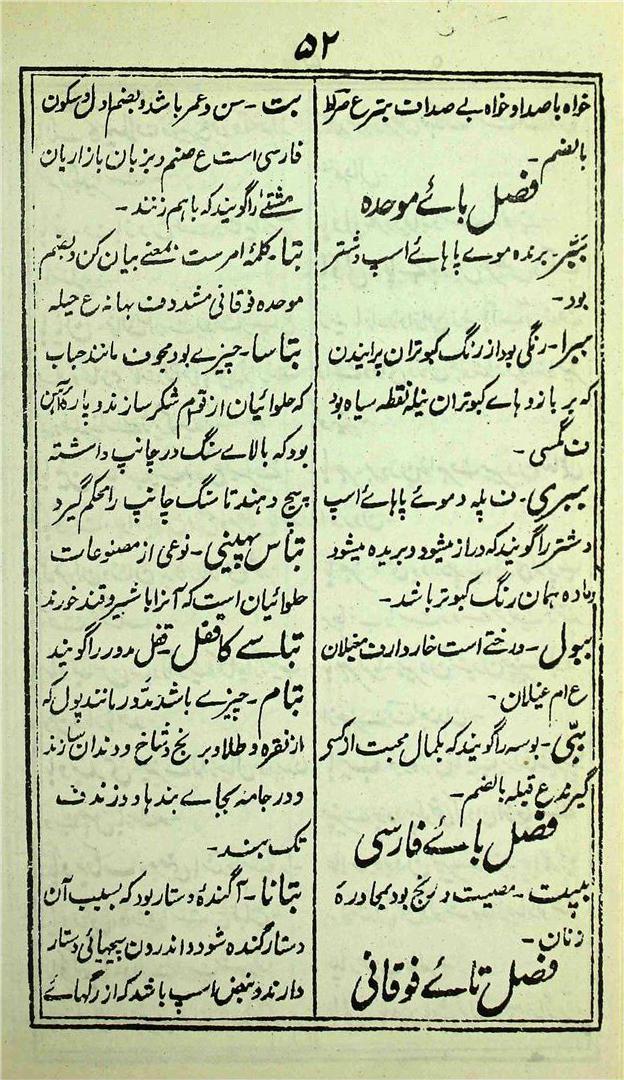 ۵۲
خواه با صدا و خواه بے صدا ف بتر ع ضراط
بالضم۔
فصل بائے موحدہ
ببر۔ برندہ موے پاہاے اسپ و شتر
بود۔
ببرا۔ رنگی بود از رنگ کبوتران پرایندن
کہ بر بازوہاے کبوتران نیلہ نقطہ سیاہ بود
ف مگسی۔
ببری۔ ف پلہ و موئے پاہاے اسپ
و شتر را گویند کہ دراز میشود و بریدہ میشود
و مادہ ہمان رنگ کبوتر باشد۔
ببول۔ درختے است خاردار ف مغیلان
ع ام غیلان۔
ببّی۔ بوسہ را گویند کہ بکمال محبت از کسی
گیرند ع قبلہ بالضم۔
فصل بائے فارسی
بپت۔ مصیبت و رنج بود بمحاورہ
زنان۔
فصل تائے فوقانی
بت۔ سن و عمر باشد و بضم اول و سکون
فارسی است ع صنم و بزبان بازاریان
مشتے را گویند کہ باہم زنند۔
بتا۔ کلمۂ امر ست بمعنے بیان کن و بضم
موحدہ فوقانی مشدد ف بہانہ ع حیلہ
بتاسا۔ چیزے بود مجوف مانند حباب
کہ حلوائیان از قوام شکر سازند و پارہ آہن
بود کہ بالاے سنگ در چانپ داشتہ
پیچ دہند تا سنگ چانپ را محکم گیرد
بتاس پھینی۔ نوعی از مصنوعات
حلوائیان است کہ آنرا با شیر و قند خورند
بتاسے کا قفل۔ قفل مدور را گویند
بتام۔ چیزے باشد مدور مانند پول کہ
از نقرہ و طلا و برنج و شاخ و دندان سازند
و در جامہ بجاے بندہا دوزند ف
تک بند۔
بتانا۔ آگندۂ دستار بود کہ بسبب آن
دستار گندہ شود و اندرون پیچہائی دستار
دارند و نبض اسپ باشد کہ از رگہائے